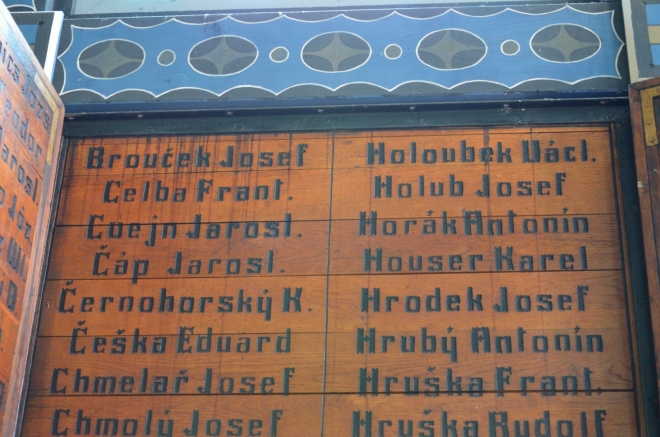 Brouček Josef
Celba Frant.
Cvejn Jarosl.
Čáp Jarosl.
Černohorský K.
Češka Eduard
Chmelař Josef
Chmolý Josef
Holoubek Václ.
Holub Josef
Horák Antonín
Houser Karel
Hrodek Josef
Hrubý Antonín
Hruška Frant.
Hruška Rudolf